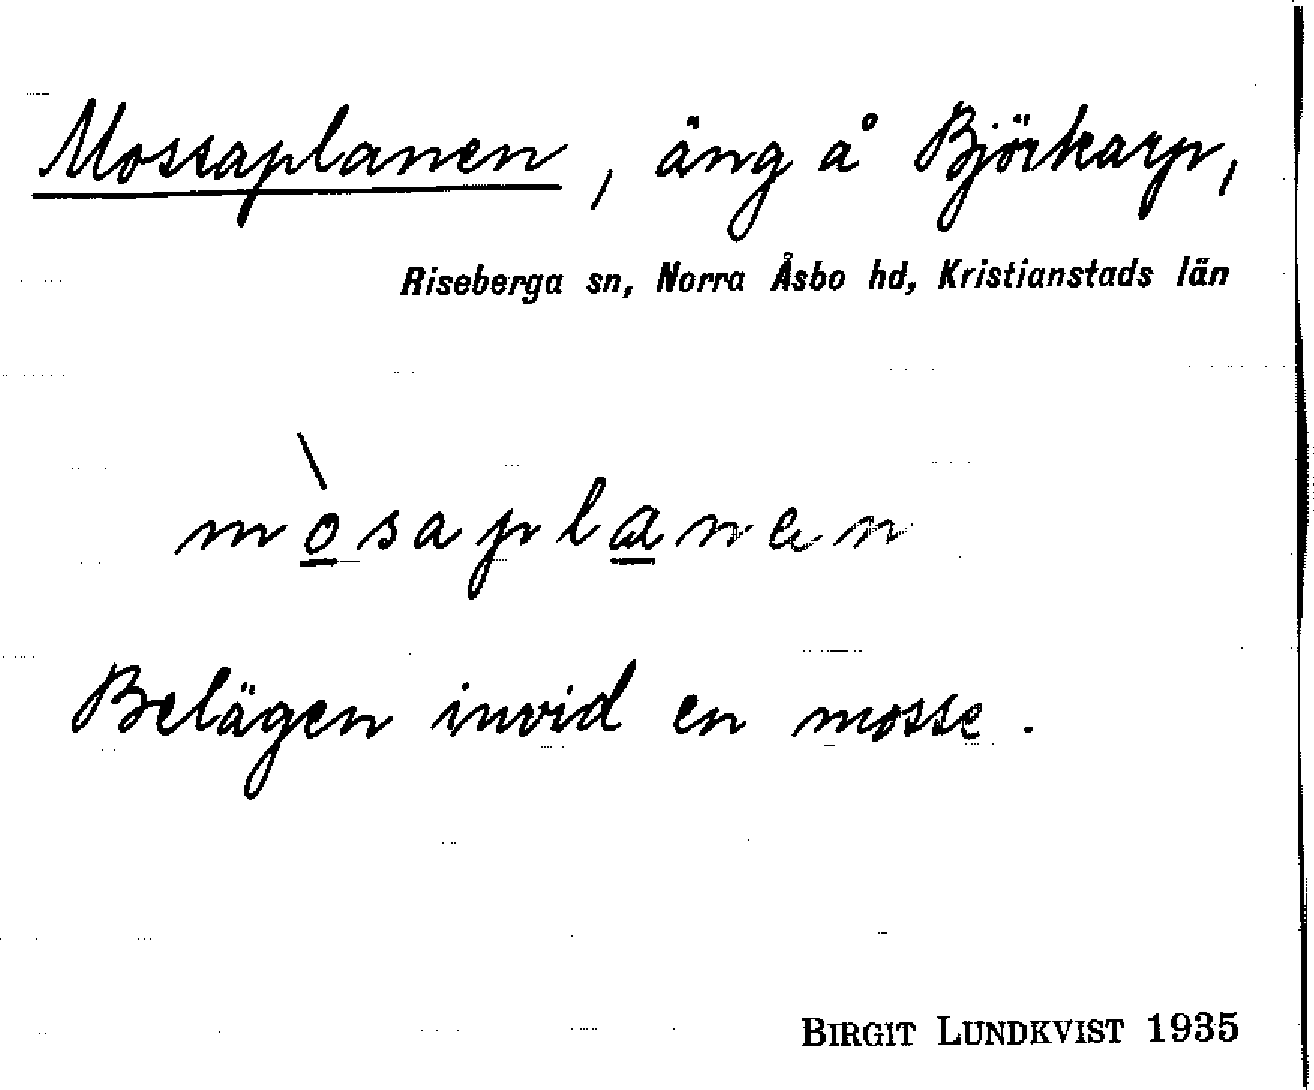 Mossaplanen, äng å Björkarp,
Riseberga sn, Norra Åsbo hd, Kristianstads län
mòsaplanan
Belägen invid en mosse.
BIRGIT LUNDKVIST 1935